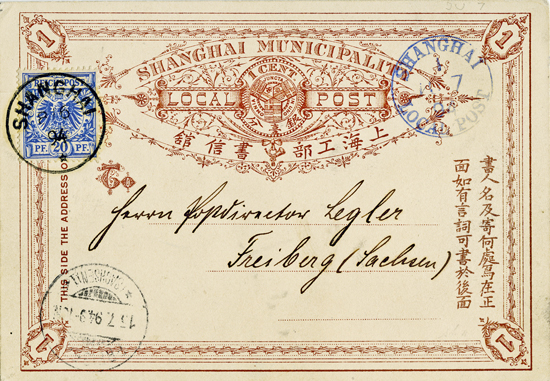 1
1
SHANGHAI MUNICIPALITY
1 CENT
LOCAL POST
銀壹分
上海工部書信館
SHANGHAI
94
PF. 20 PF.
SHANGHAI
7
LOCAL POST
THIS SIDE THE ADDRESS
To
Herrn Postdirector Legler
Freiberg (Sachsen)
書人名及寄何處寫在正
面如有言詞可書於後面
13.7.94
1
1